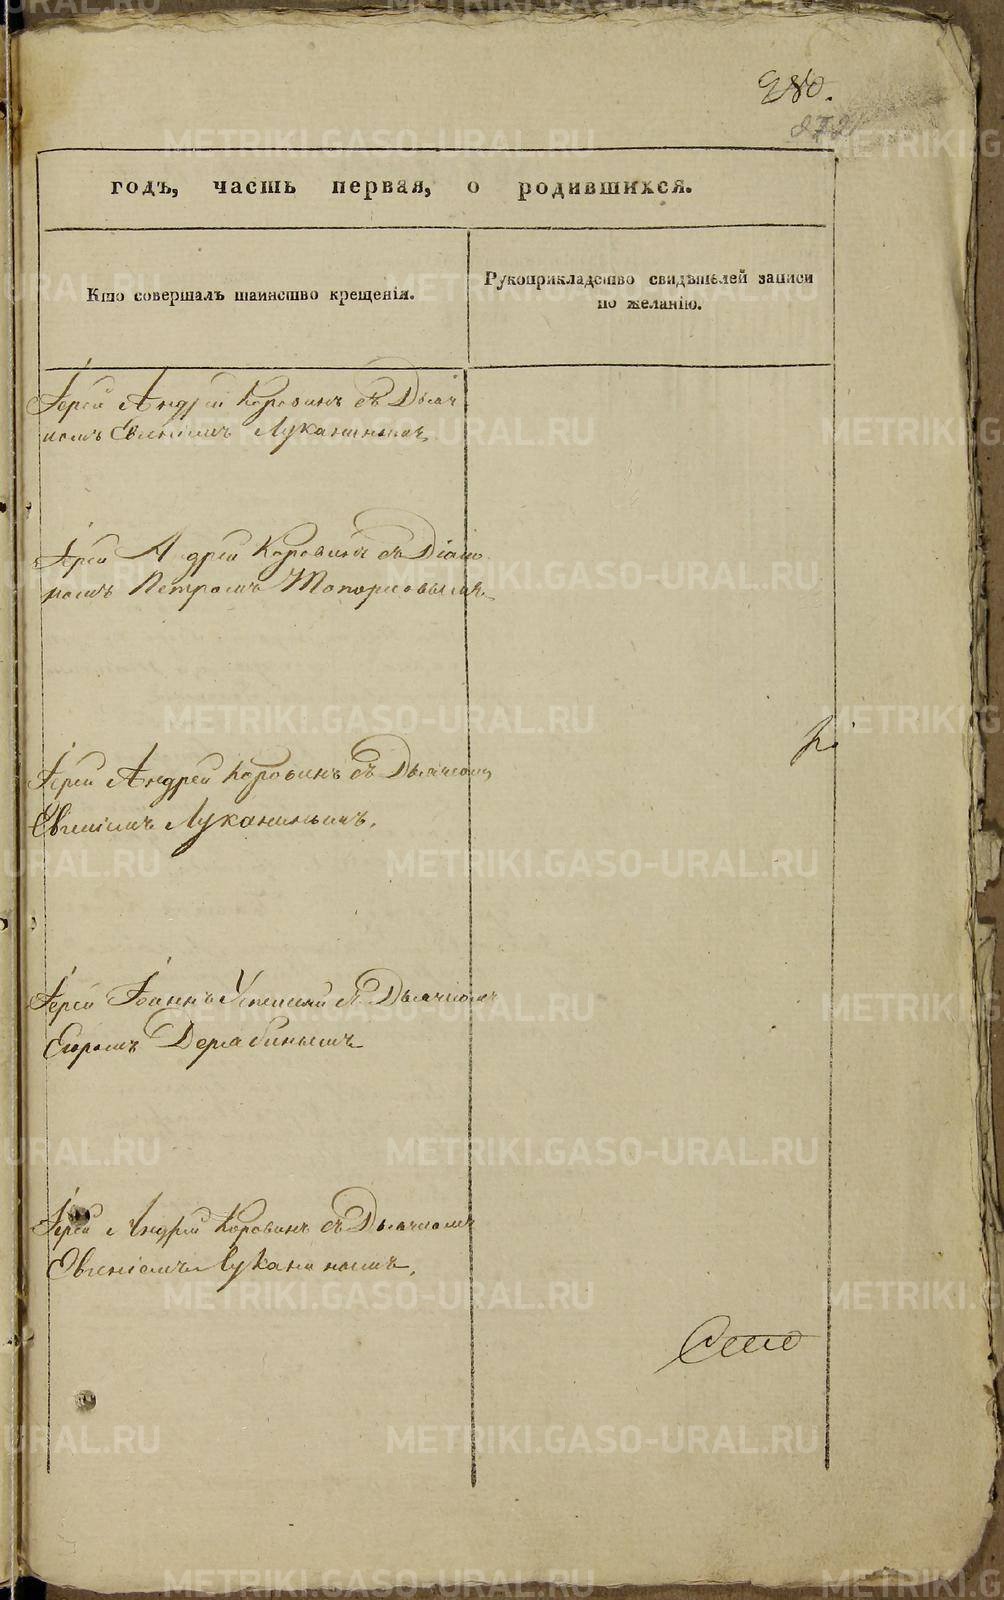 280.
272
годъ, часть первая, о родившихся.
Кто совершалъ таинство крещенія.
Рукоприкладство свидѣтелей записи
по желанію.
Іерей Андрей Коровинъ съ Дьяч
комъ Евгеніемъ Луканинымъ
Іерей Андрей Коровинъ съ Діако
номъ Петромъ Топорковымъ
Іерей Андрей Коровинъ съ Дьячкомъ
Евгеніемъ Луканинымъ.
Іерей Іоаннъ Успенскій съ Дьячкомъ
Егоромъ Дерябинымъ
Іерей Андрей Коровинъ съ Дьячкомъ
Евгеніемъ Луканинымъ.
METRIKI.GASO-URAL.RU